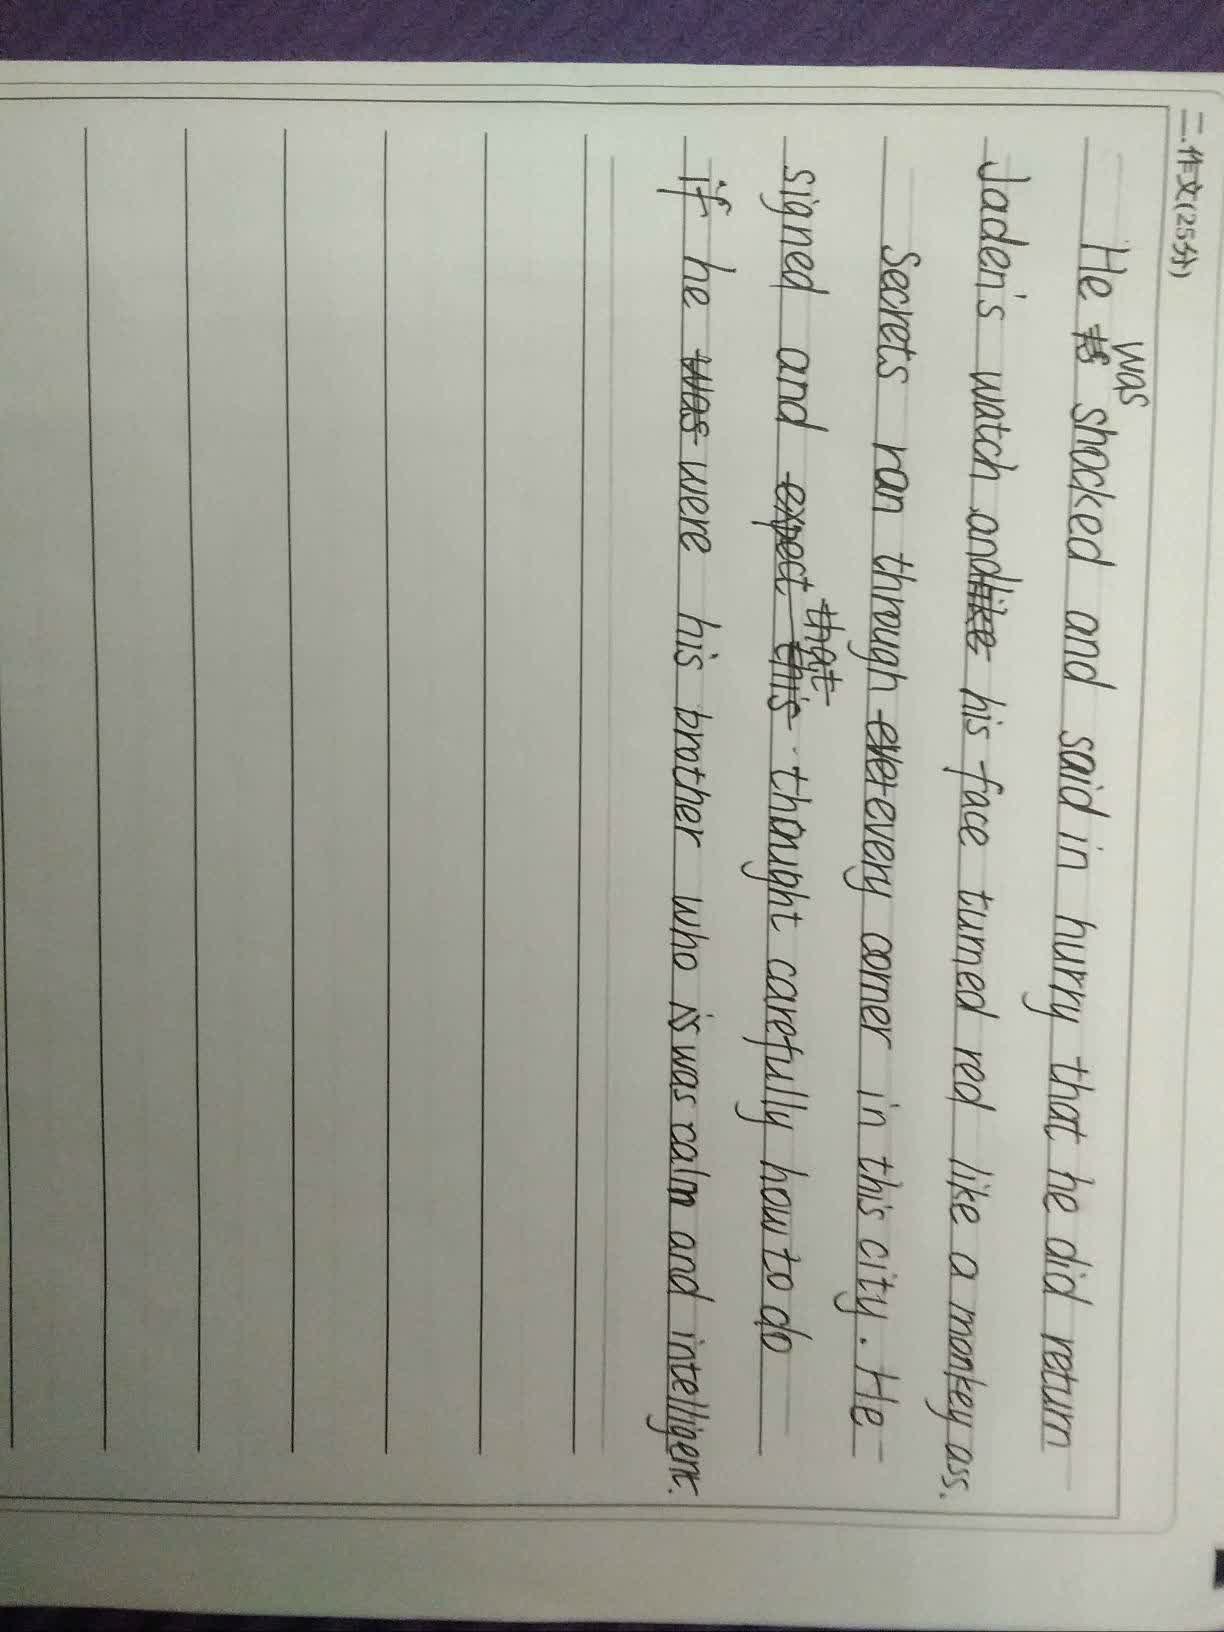 二.作文(25分)
was
He is shocked and said in hurry that he did return
Jaden's watch and like his face turned red like a monkey ass.
Secrets ran through ever every corner in this city. He
that
signed and expect this thought carefully how to do
if he was were his brother who is was calm and intelligent.